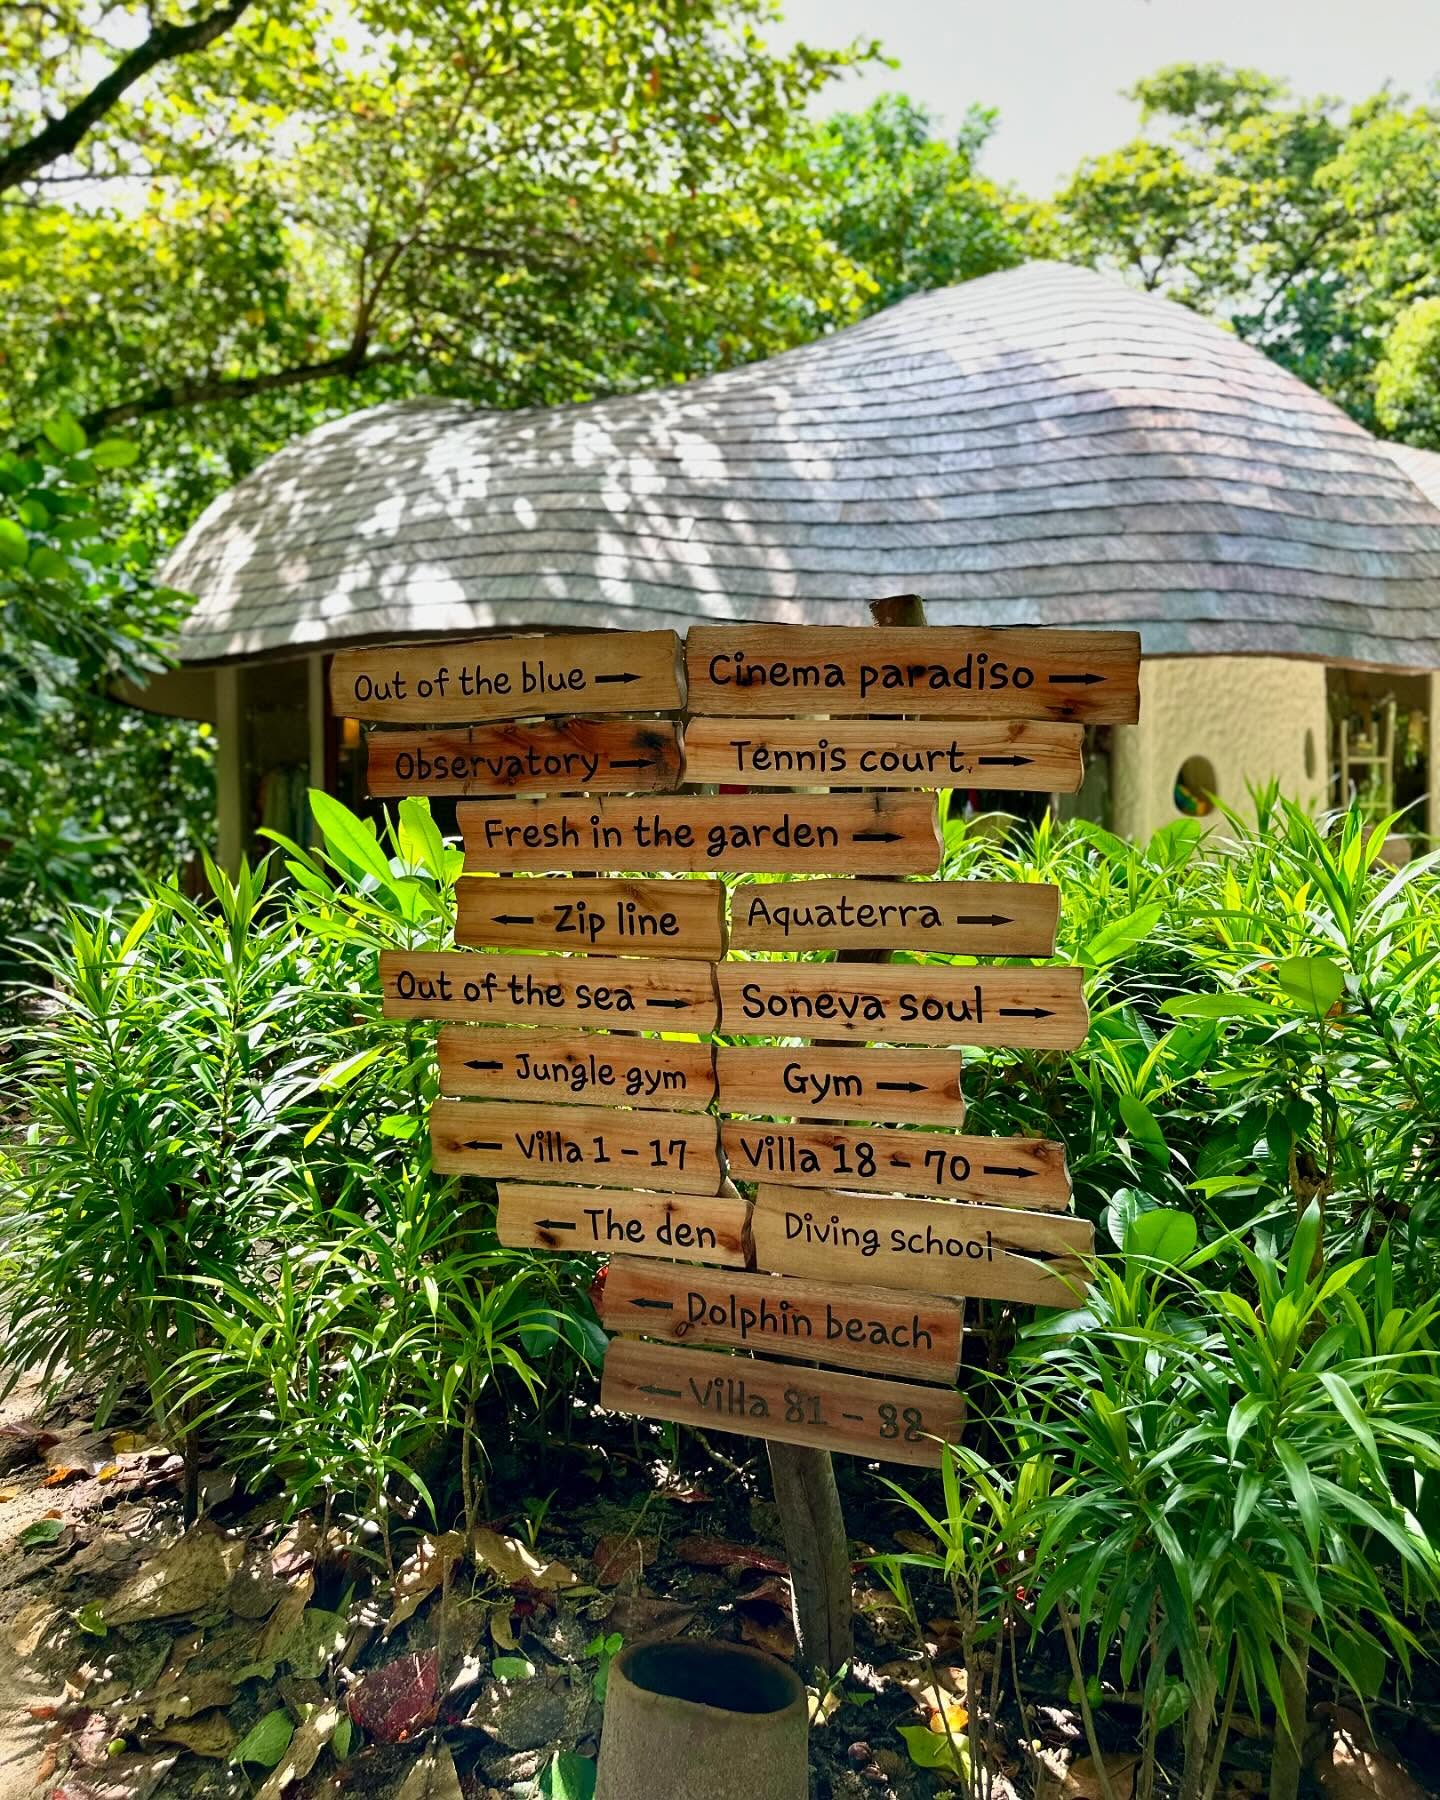 Out of the blue →
Cinema paradiso →
Observatory →
Tennis court →
Fresh in the garden →
← Zip line
Aquaterra →
Out of the sea →
Soneva soul →
← Jungle gym
Gym →
← Villa 1 - 17
Villa 18 - 70 →
← The den
Diving school →
← Dolphin beach
← Villa 81 - 88